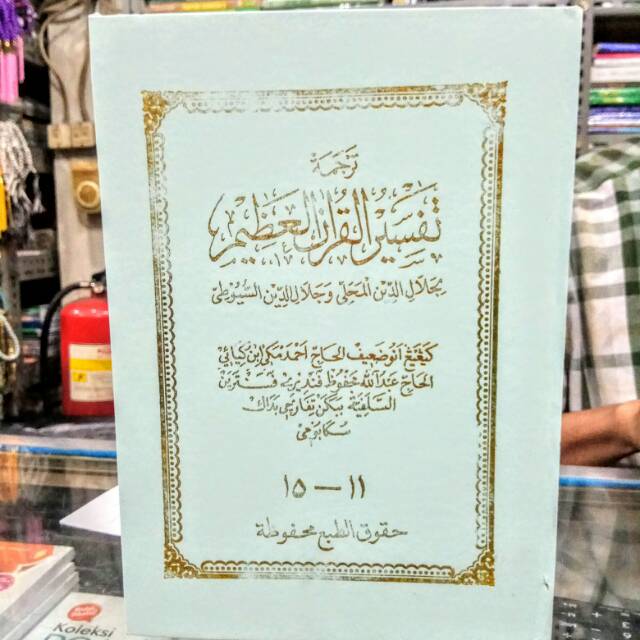 ترجمة
تفسير القرآن العظيم
لجلال الدين المحلي وجلال الدين السيوطي
كڠڠ ابو ضعيف الحاج احمد مكي ابن كياهي
الحاج عبد الله محفوظ ڤڠدرس ڤسنترين
السلفية
سكابومي
١١ — ١٥
حقوق الطبع محفوظة
Koleksi